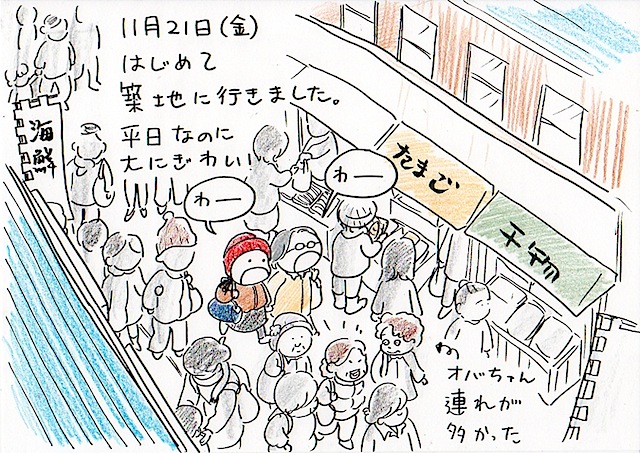 11月21日(金)
はじめて
築地に行きました。
平日なのに
大にぎわい!
海鮮
わー
わー
たまご
干物
オバちゃん
連れが
多かった